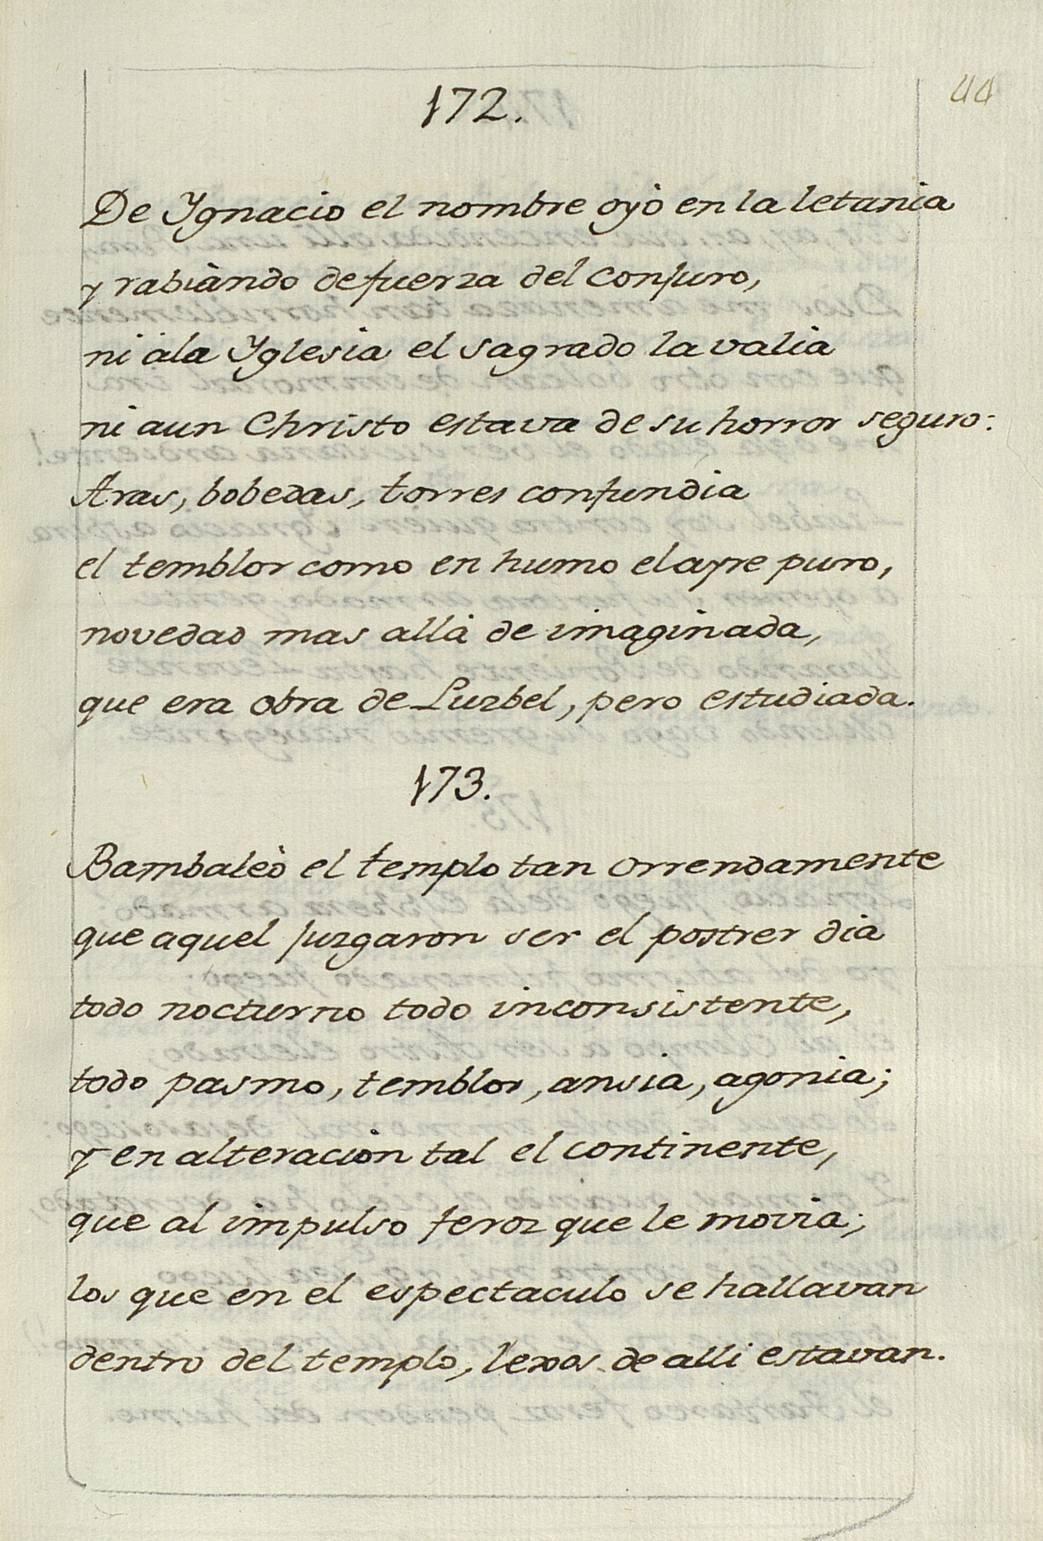 44
172.
De Ygnacio el nombre oyò en la letania
y rabiàndo de fuerza del conjuro,
ni àla Yglesia el sagrado la valia
ni aun Christo estava de su horror seguro:
Aras, bobedas, torres confundia
el temblor como en humo el ayre puro,
novedad mas allà de imaginada,
que era obra de Luzbel, pero estudiada.
173.
Bambaleò el templo tan orrendamente
que aquel juzgaron ser el postrer dia
todo nocturno todo inconsistente,
todo pasmo, temblor, ansia, agonia;
y en alteracion tal el continente,
que al impulso feroz que le movia;
los que en el espectaculo se hallavan
dentro del templo, lexos de alli estavan.